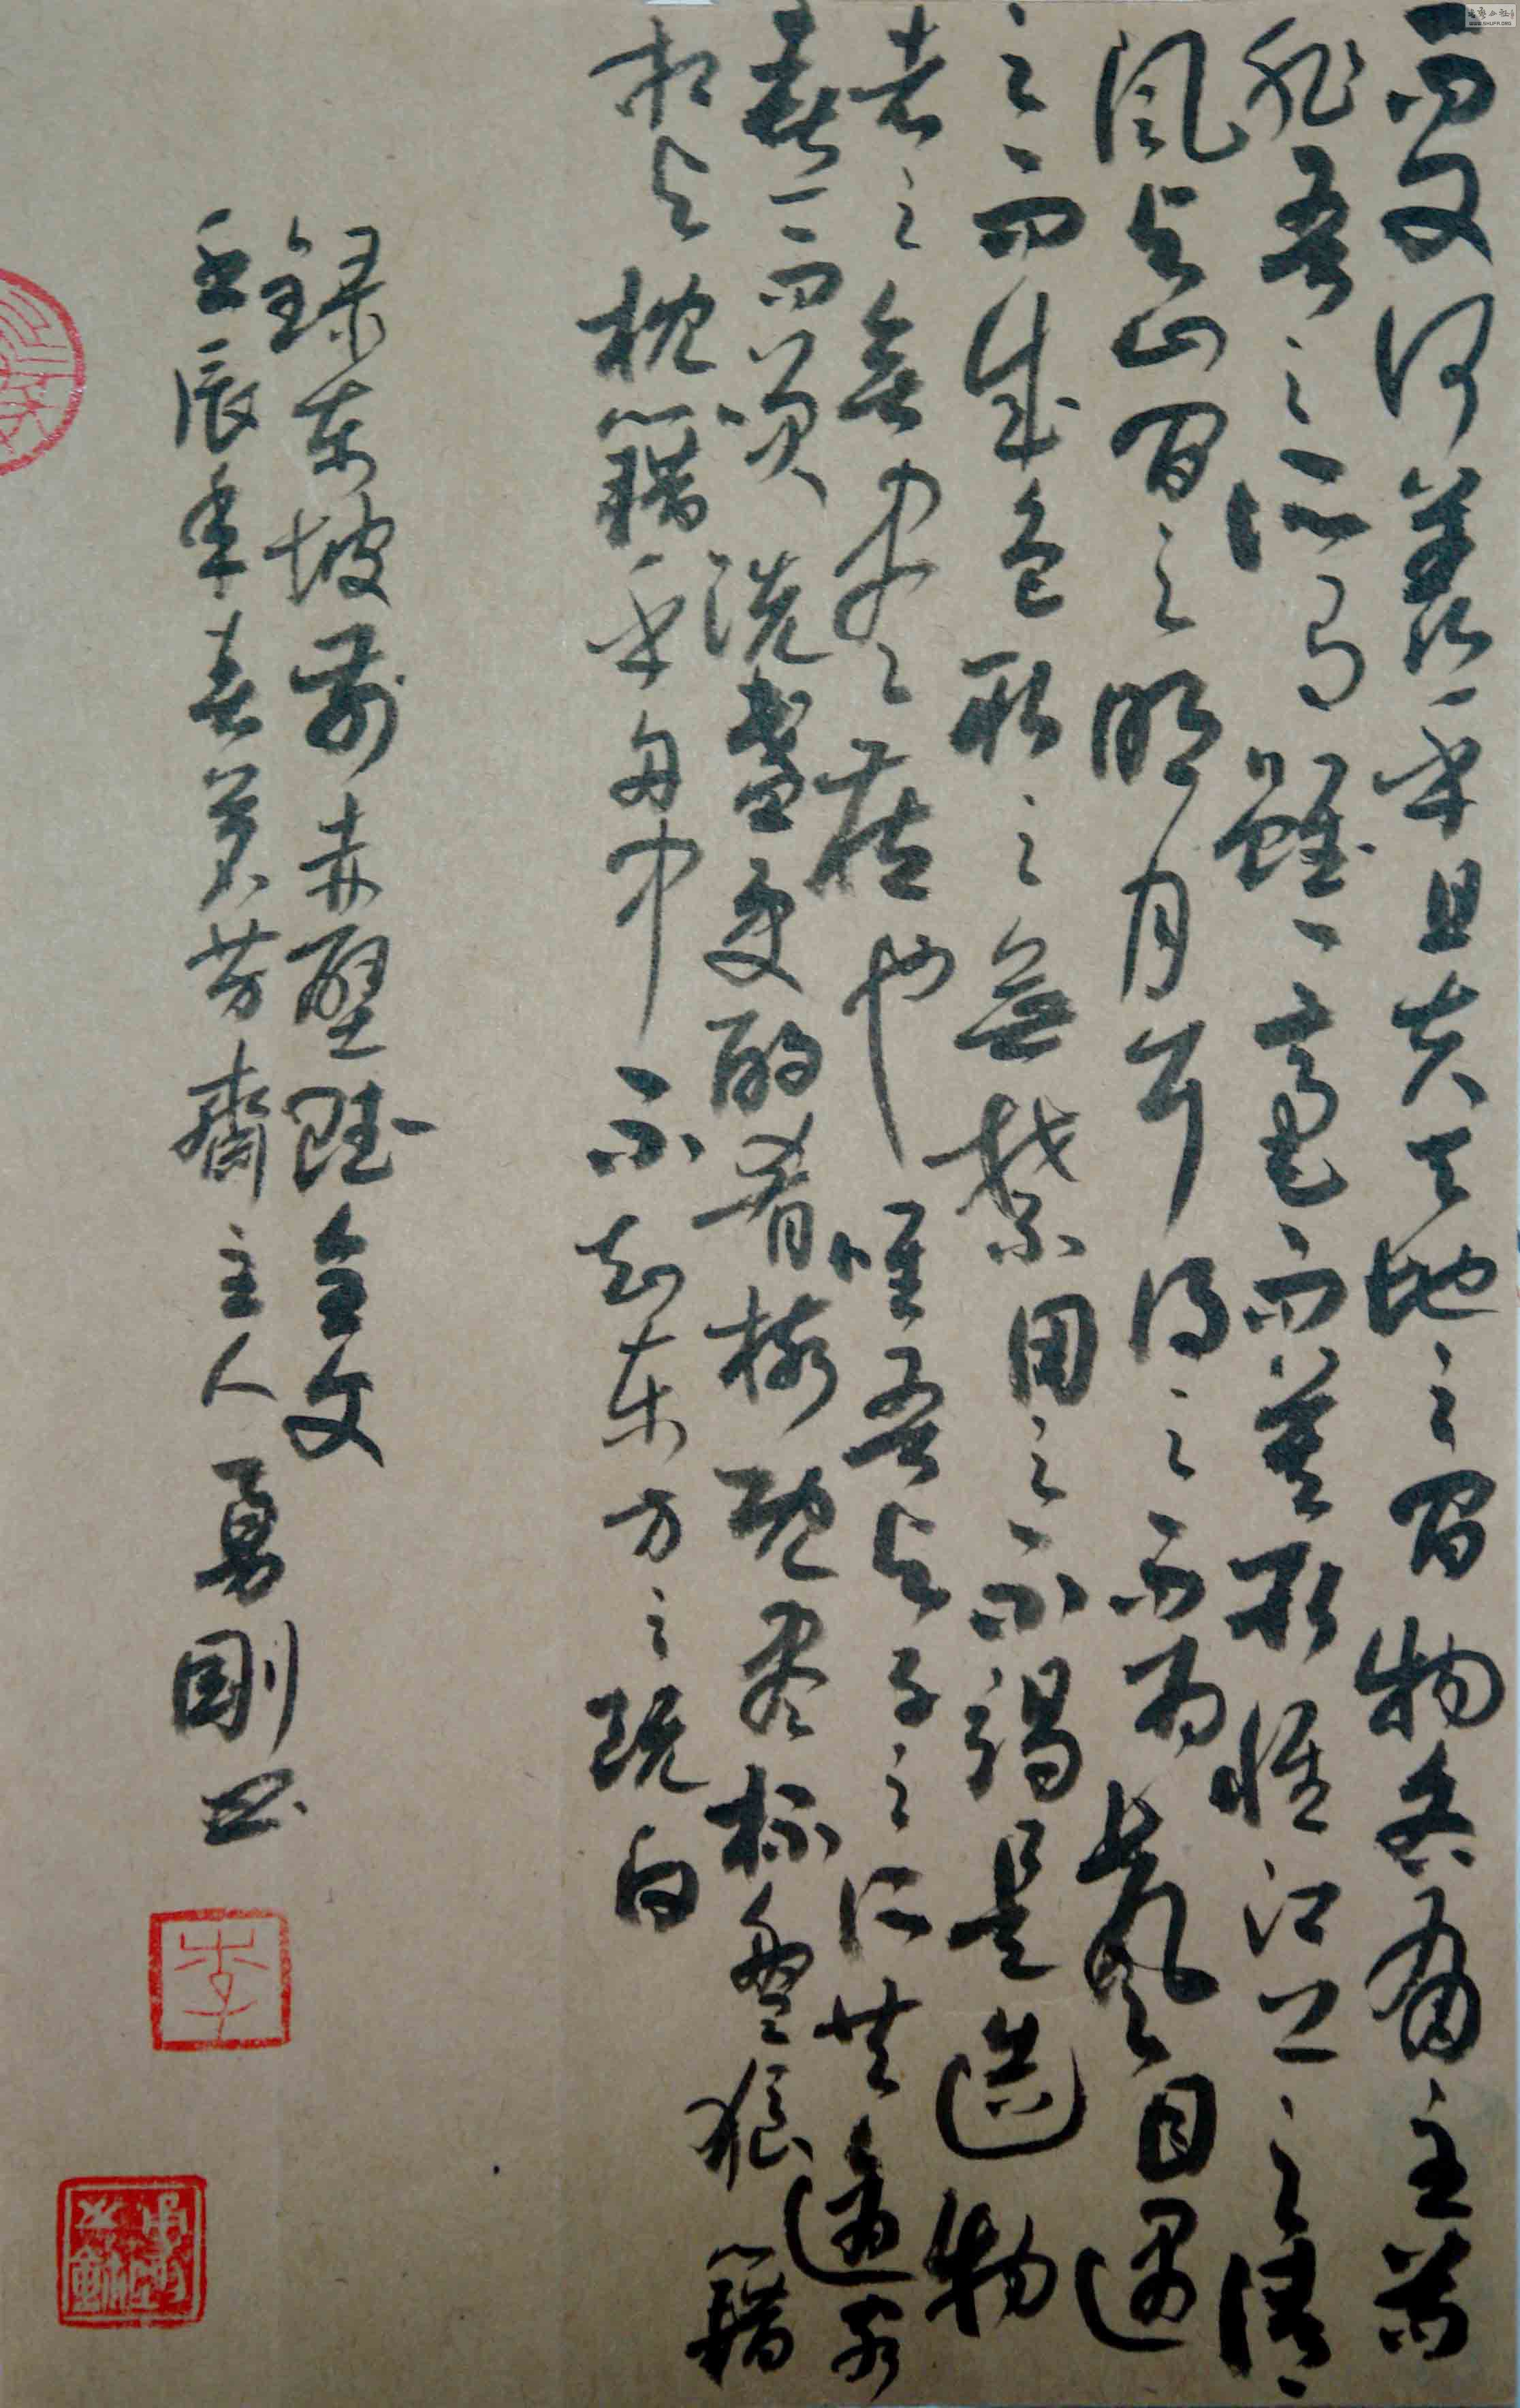 而又何羡乎且夫天地之間物各有主苟
非吾之所有雖一毫而莫取惟江上之清
風與山間之明月耳得之而為聲目遇
之而成色取之無禁用之不竭是造物
者之無盡之藏也唯吾與子之所共適客
喜而笑洗盞更酌肴核既盡杯盤狼籍
相與枕籍乎舟中不知東方之既白
録東坡前赤壁賦全文
壬辰年春芳齋主人勇剛書
李